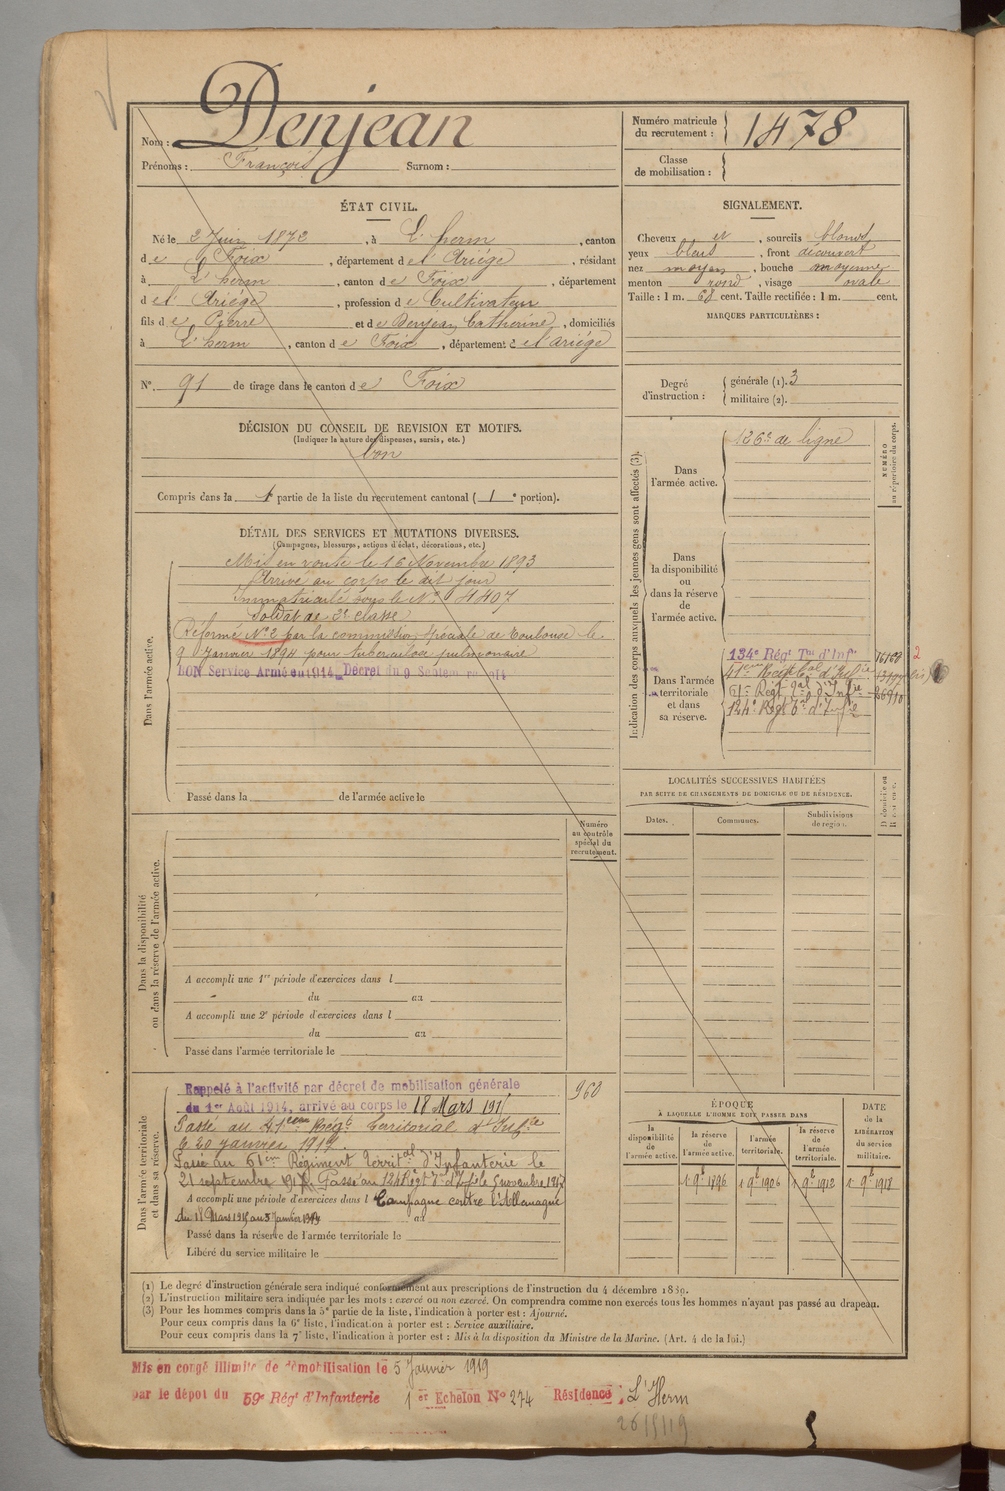 Nom : Denjean
Prénoms : François Surnom :
Numéro matricule du recrutement : 1478
Classe de mobilisation :
ÉTAT CIVIL.
Né le 2 Juin 1872, à L'herm, canton
de Foix, département de l'Ariège, résidant
à L'herm, canton de Foix, département
de l'Ariège, profession de Cultivateur
fils de Pierre et de Denjean Catherine, domiciliés
à L'herm, canton de Foix, département de l'ariège
N° 91 de tirage dans le canton de Foix
DÉCISION DU CONSEIL DE REVISION ET MOTIFS.
(Indiquer la nature des dispenses, sursis, etc.)
bon
Compris dans la 1 partie de la liste du recrutement cantonal (1e portion).
SIGNALEMENT.
Cheveux et, sourcils blonds
yeux bleus, front découvert
nez moyen, bouche moyenne
menton rond, visage ovale
Taille : 1 m. 68 cent. Taille rectifiée : 1 m. cent.
MARQUES PARTICULIÈRES :
Degré d'instruction :
générale (1). 3
militaire (2).
DÉTAIL DES SERVICES ET MUTATIONS DIVERSES.
(Campagnes, blessures, actions d'éclat, décorations, etc.)
Dans l'armée active.
Mis en route le 16 Novembre 1893
Arrivé au corps le dit jour
Immatriculé sous le N° 4407
Soldat de 2e classe
Réformé N° 2 par la commission spéciale de Toulouse le
9 Janvier 1894 pour tuberculose pulmonaire
BON Service Armé en 1914 Décret du 9 Septembre 1914
Passé dans la de l'armée active le
Indication des corps auxquels les jeunes gens sont affectés (3).
NUMÉRO au répertoire du corps.
Dans l'armée active.
126e de ligne
Dans la disponibilité ou dans la réserve de l'armée active.
Dans l'armée territoriale et dans sa réserve.
134e Régt Tal d'Infie
41eme Regt Tal d'Infie
61e Régt Tal d'Infie
124e Régt Tal d'Infie
LOCALITÉS SUCCESSIVES HABITÉES
PAR SUITE DE CHANGEMENTS DE DOMICILE OU DE RÉSIDENCE.
Dates. Communes. Subdivisions de région.
D domicile ou R résidence.
Numéro au contrôle spécial du recrutement.
960
Dans la disponibilité ou dans la réserve de l'armée active.
A accompli une 1re période d'exercices dans l
du au
A accompli une 2e période d'exercices dans l
du au
Passé dans l'armée territoriale le
Dans l'armée territoriale et dans sa réserve.
Rappelé à l'activité par décret de mobilisation générale
du 1er Août 1914, arrivé au corps le 18 Mars 191
Passé au 41eme Régt territorial d'Infie
le 20 janvier 1917
Passé au 61em Régiment Territal d'Infanterie le
21 septembre 1917. Passé au 124e Regt Tal d'Infie le 5 novembre 1917
A accompli une période d'exercices dans l Campagne contre l'Allemagne
du 18 Mars 1915 au 5 Janvier 1919 au
Passé dans la réserve de l'armée territoriale le
Libéré du service militaire le
ÉPOQUE
À LAQUELLE L'HOMME DOIT PASSER DANS
la disponibilité de l'armée active. la réserve de l'armée active. l'armée territoriale. la réserve de l'armée territoriale.
DATE de la LIBÉRATION du service militaire.
1 9bre 1896 1 9bre 1906 1 9bre 1912 1 9bre 1918
(1) Le degré d'instruction générale sera indiqué conformément aux prescriptions de l'instruction du 4 décembre 1889.
(2) L'instruction militaire sera indiquée par les mots : exercé ou non exercé. On comprendra comme non exercés tous les hommes n'ayant pas passé au drapeau.
(3) Pour les hommes compris dans la 5e partie de la liste, l'indication à porter est : Ajourné.
Pour ceux compris dans la 6e liste, l'indication à porter est : Service auxiliaire.
Pour ceux compris dans la 7e liste, l'indication à porter est : Mis à la disposition du Ministre de la Marine. (Art. 4 de la loi.)
Mis en congé illimité de démobilisation le 5 Janvier 1919
par le dépôt du 59e Régt d'Infanterie 1er Echelon N° 274 Résidence : L'Herm